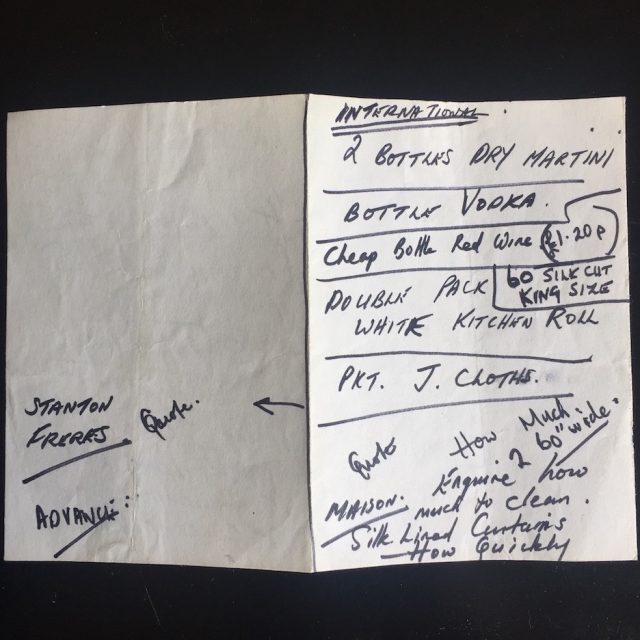 INTERNATIONAL.
2 BOTTLES DRY MARTINI
BOTTLE VODKA.
Cheap Bottle Red Wine (£1.20p)
60 SILK CUT
KING SIZE
DOUBLE PACK
WHITE KITCHEN ROLL
PKT. J. CLOTHS.
Quote How Much
60" wide.
MAISON. Enquire 2 how
much to clean.
Silk Lined Curtains
— How Quickly
STANTON Quote.
FRERES
ADVANCE: